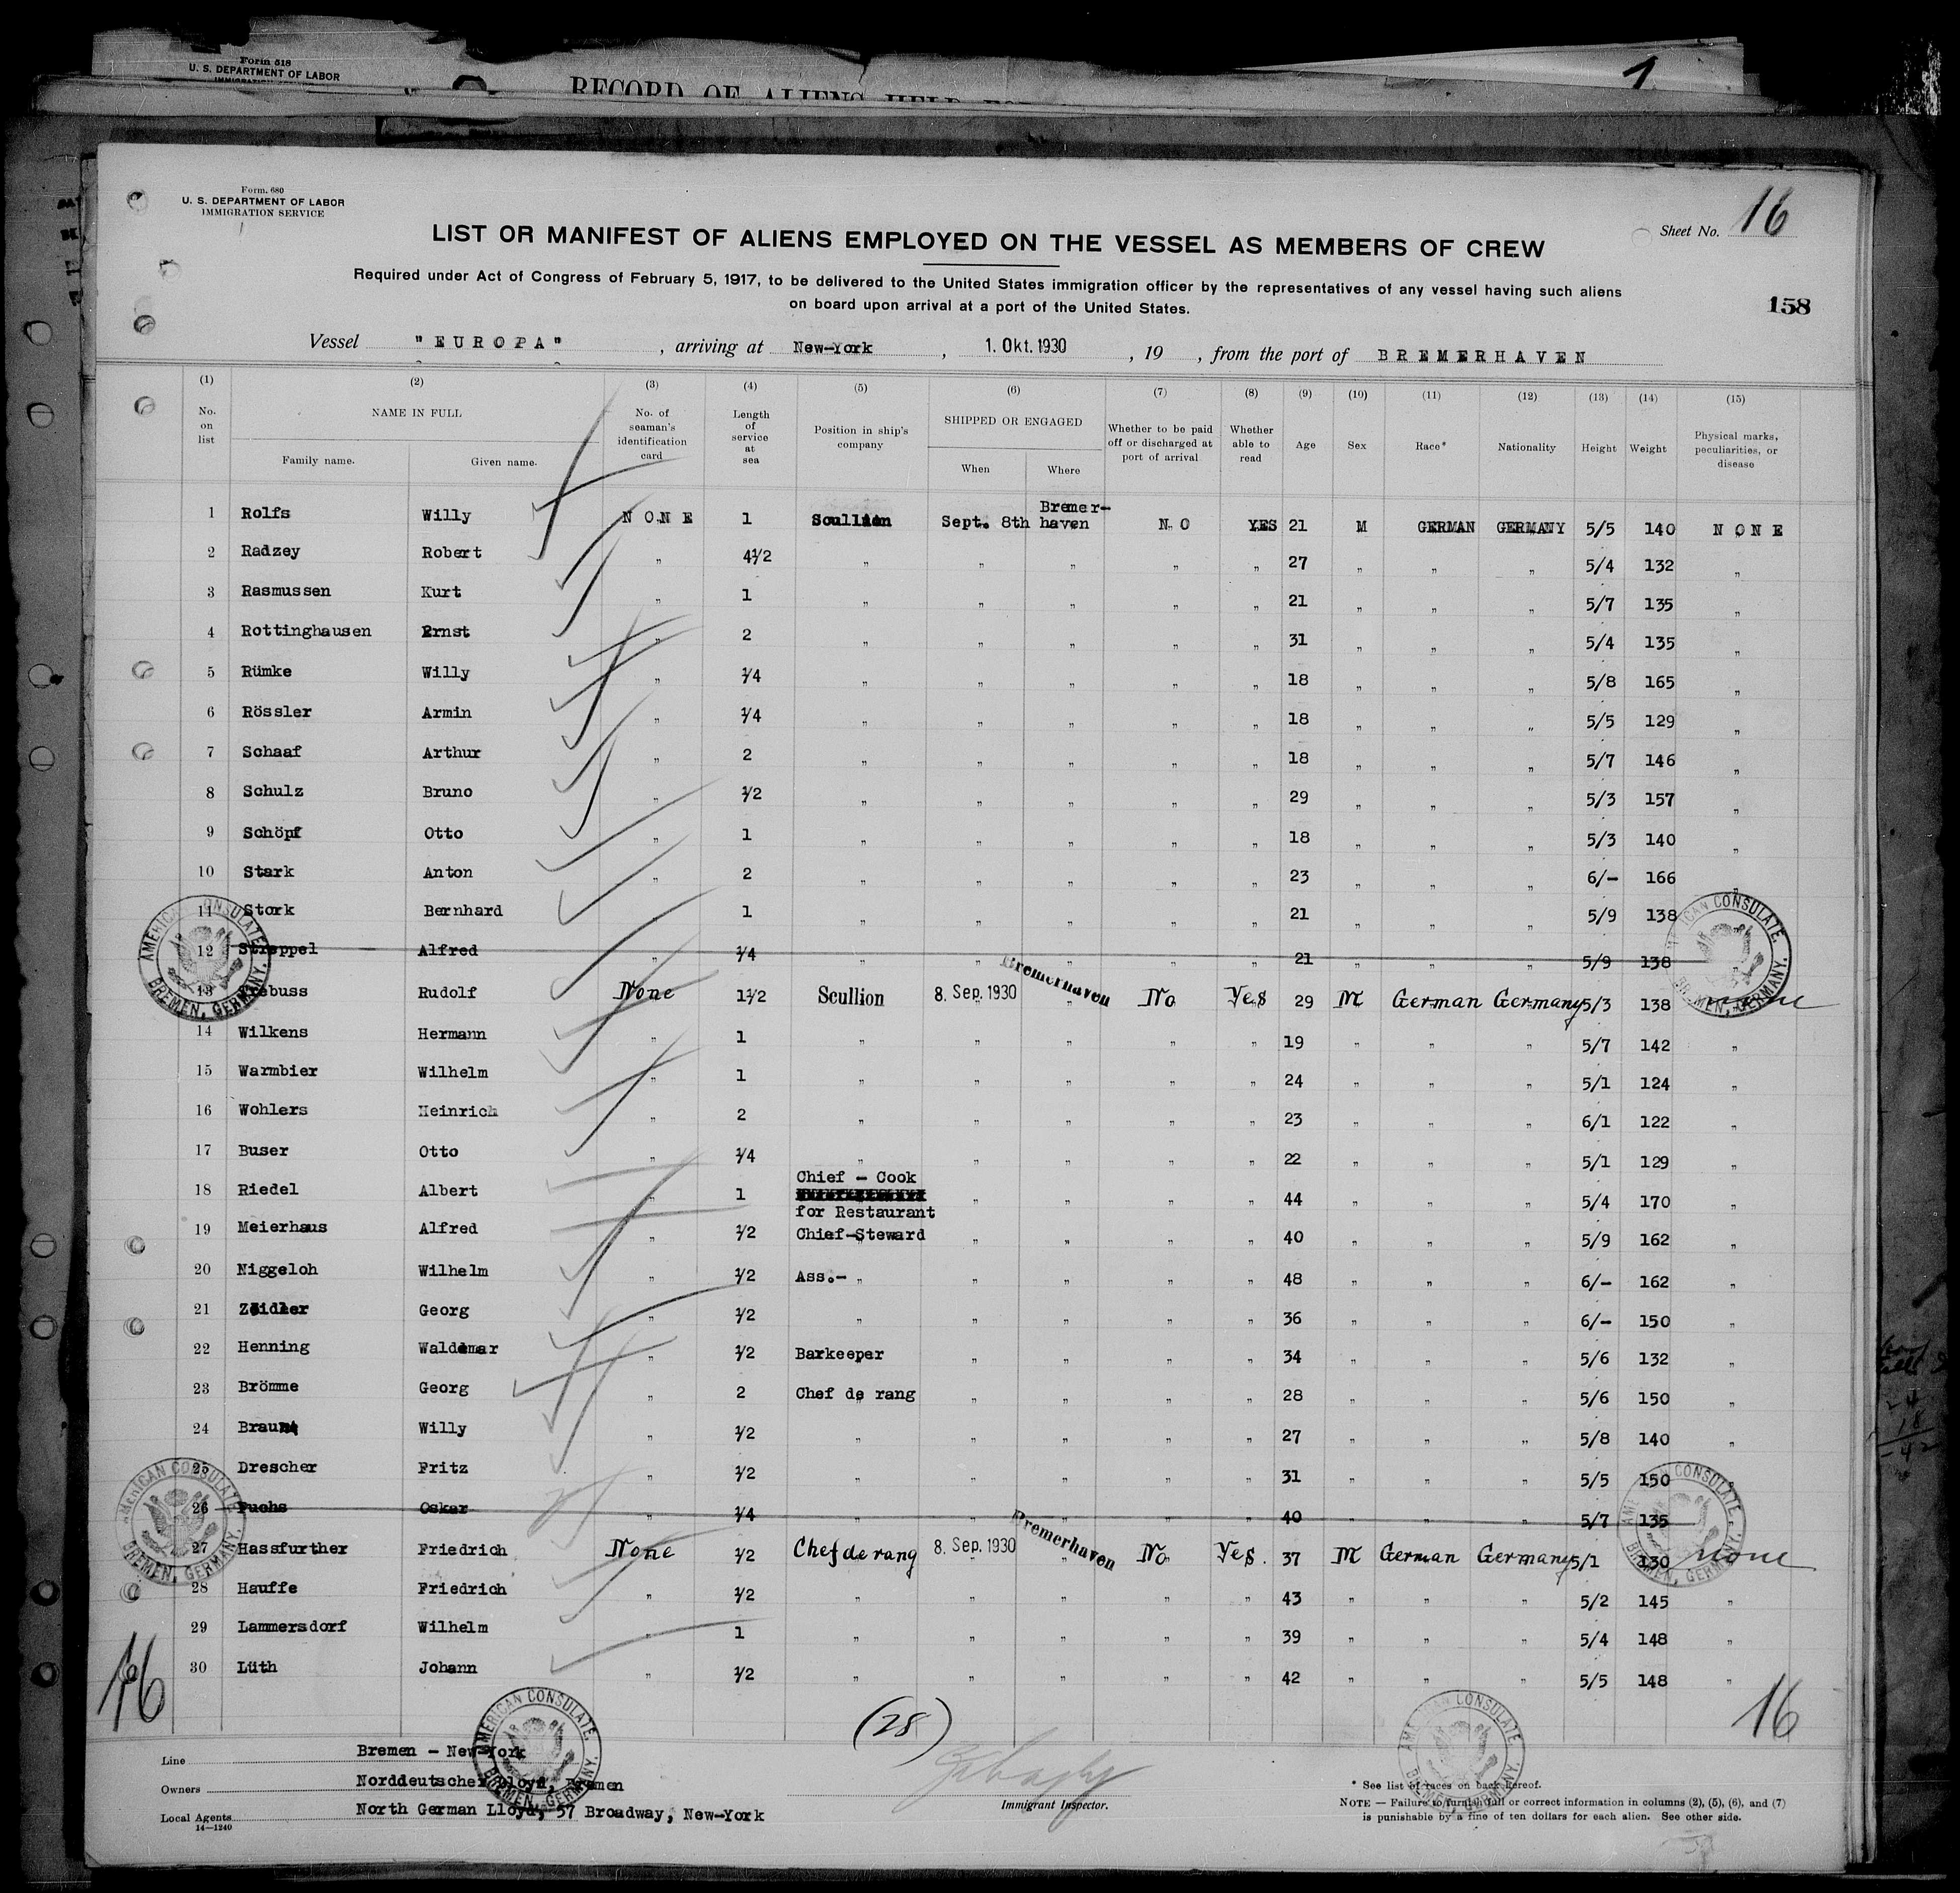 Form 518
U. S. DEPARTMENT OF LABOR
RECORD OF ALIENS HELD
1
Form. 680
U. S. DEPARTMENT OF LABOR
IMMIGRATION SERVICE
Sheet No. 16
LIST OR MANIFEST OF ALIENS EMPLOYED ON THE VESSEL AS MEMBERS OF CREW
Required under Act of Congress of February 5, 1917, to be delivered to the United States immigration officer by the representatives of any vessel having such aliens
on board upon arrival at a port of the United States.
158
Vessel "EUROPA", arriving at New-York, 1. Okt. 1930, 19 , from the port of BREMERHAVEN
(1) (2) (3) (4) (5) (6) (7) (8) (9) (10) (11) (12) (13) (14) (15)
No. on list
NAME IN FULL
Family name. Given name.
No. of seaman's identification card
Length of service at sea
Position in ship's company
SHIPPED OR ENGAGED
When Where
Whether to be paid off or discharged at port of arrival
Whether able to read
Age Sex Race* Nationality Height Weight
Physical marks, peculiarities, or disease
1 Rolfs Willy NONE 1 Scullion Sept. 8th Bremer-haven NO YES 21 M GERMAN GERMANY 5/5 140 NONE
2 Radzey Robert " 4½ " " " " " 27 " " " 5/4 132 "
3 Rasmussen Kurt " 1 " " " " " 21 " " " 5/7 135 "
4 Rottinghausen Ernst " 2 " " " " " 31 " " " 5/4 135 "
5 Rümke Willy " ¼ " " " " " 18 " " " 5/8 165 "
6 Rössler Armin " ¼ " " " " " 18 " " " 5/5 129 "
7 Schaaf Arthur " 2 " " " " " 18 " " " 5/7 146 "
8 Schulz Bruno " ½ " " " " " 29 " " " 5/3 157 "
9 Schöpf Otto " 1 " " " " " 18 " " " 5/3 140 "
10 Stark Anton " 2 " " " " " 23 " " " 6/- 166 "
11 Stork Bernhard " 1 " " " " " 21 " " " 5/9 138
12 Streppel Alfred " ¼ " " " " " 21 " " " 5/9 138
13 Rudolf None 1½ Scullion 8. Sep. 1930 Bremerhaven No Yes 29 M German Germany 5/3 138 none
14 Wilkens Hermann " 1 " " " " " 19 " " " 5/7 142 "
15 Warmbier Wilhelm " 1 " " " " " 24 " " " 5/1 124 "
16 Wohlers Heinrich " 2 " " " " " 23 " " " 6/1 122 "
17 Buser Otto " ¼ " " " " " 22 " " " 5/1 129 "
18 Riedel Albert " 1 Chief - Cook for Restaurant " " " " 44 " " " 5/4 170 "
19 Meierhaus Alfred " ½ Chief-Steward " " " " 40 " " " 5/9 162 "
20 Niggeloh Wilhelm " ½ Ass.- " " " " " 48 " " " 6/- 162 "
21 Zeidler Georg " ½ " " " " " 36 " " " 6/- 150 "
22 Henning Waldemar " ½ Barkeeper " " " " 34 " " " 5/6 132 "
23 Brömme Georg " 2 Chef de rang " " " " 28 " " " 5/6 150 "
24 Willy " ½ " " " " " 27 " " " 5/8 140 "
25 Drescher Fritz " ½ " " " " " 31 " " " 5/5 150
26 Fuchs Oskar " ¼ " " " " " 40 " " " 5/7 135
27 Hassfurther Friedrich None ½ Chef de rang 8. Sep. 1930 Bremerhaven No Yes. 37 M German Germany 5/1 130 none
28 Hauffe Friedrich " ½ " " " " " 43 " " " 5/2 145 "
29 Lammersdorf Wilhelm " 1 " " " " " 39 " " " 5/4 148 "
30 Lüth Johann " ½ " " " " " 42 " " " 5/5 148 "
AMERICAN CONSULATE. BREMEN, GERMANY.
AMERICAN CONSULATE. BREMEN, GERMANY.
AMERICAN CONSULATE. BREMEN, GERMANY.
AMERICAN CONSULATE. BREMEN, GERMANY.
16
(28)
16
AMERICAN CONSULATE. BREMEN, GERMANY.
AMERICAN CONSULATE. BREMEN, GERMANY.
Line Bremen - New-York
Owners Norddeutscher Lloyd, Bremen
Local Agents North German Lloyd, 57 Broadway, New-York
14-1240
Immigrant Inspector.
* See list of races on back hereof.
NOTE — Failure to furnish full or correct information in columns (2), (5), (6), and (7)
is punishable by a fine of ten dollars for each alien. See other side.